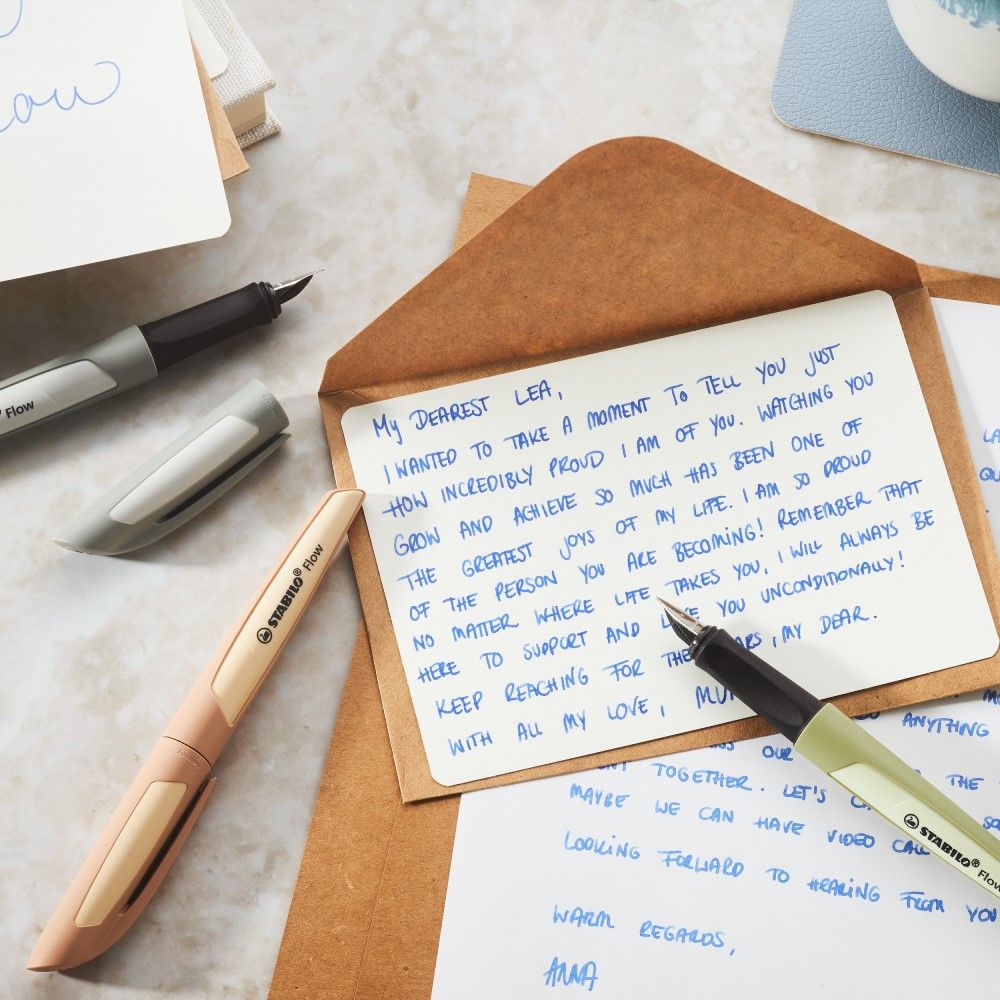 ow
Flow
STABILO® Flow
My DEAREST LEA,
I WANTED TO TAKE A MOMENT TO TELL YOU JUST
HOW INCREDIBLY PROUD I AM OF YOU. WATCHING YOU
GROW AND ACHIEVE SO MUCH HAS BEEN ONE OF
THE GREATEST JOYS OF MY LIFE. I AM SO PROUD
OF THE PERSON YOU ARE BECOMING! REMEMBER THAT
NO MATTER WHERE LIFE TAKES YOU, I WILL ALWAYS BE
HERE TO SUPPORT AND YOU UNCONDITIONALLY!
KEEP REACHING FOR THE , MY DEAR.
WITH ALL MY LOVE,
STABILO® Flow
ANYTHING
OUR THE
TOGETHER. LET'S
MAYBE WE CAN HAVE VIDEO CALL
LOOKING FORWARD TO HEARING FROM YOU
WARM REGARDS,
ANNA